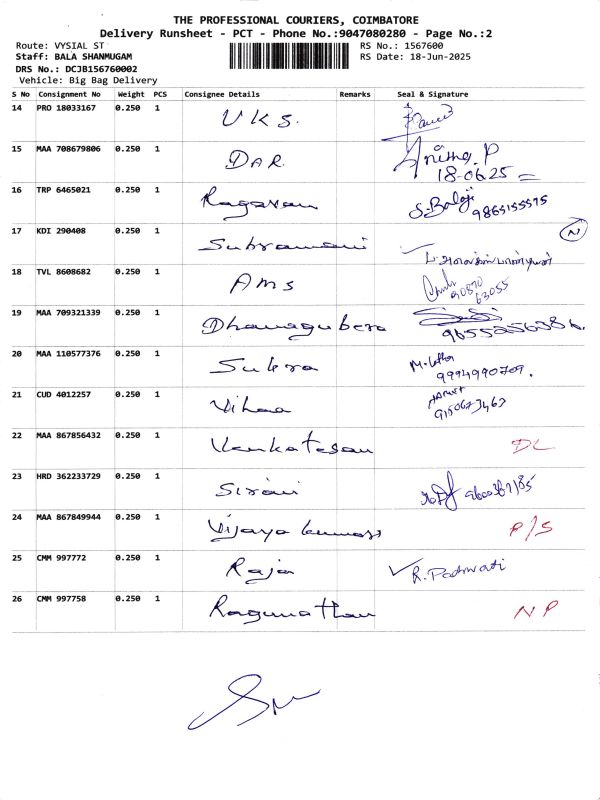 THE PROFESSIONAL COURIERS, COIMBATORE
Delivery Runsheet - PCT - Phone No.:9047080280 - Page No.:2
Route: VYSIAL ST
RS No.: 1567600
Staff: BALA SHANMUGAM
RS Date: 18-Jun-2025
DRS No.: DCJB156760002
Vehicle: Big Bag Delivery
S No Consignment No Weight PCS Consignee Details Remarks Seal & Signature
14 PRO 18033167 0.250 1 UKS.
15 MAA 708679806 0.250 1 DAR Anitha. P
18-06.25
16 TRP 6465021 0.250 1 Ragavan S. Balaji
9865155575
17 KDI 290408 0.250 1 Subramani N
18 TVL 8608682 0.250 1 AMS
90870
63055
19 MAA 709321339 0.250 1 Dhanagubera
20 MAA 110577376 0.250 1 Sukra
9994990709.
21 CUD 4012257 0.250 1 Vihaa
9150673463
22 MAA 867856432 0.250 1 Venkatesan DL
23 HRD 362233729 0.250 1
24 MAA 867849944 0.250 1 Vijaya kumar P/S
25 CMM 997772 0.250 1 Raja R. Padmvati
26 CMM 997758 0.250 1 Ragunathan NP